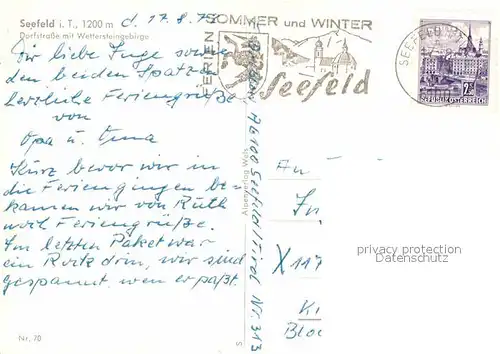 Seefeld i. T., 1200 m d. 17.8.75
Dorfstraße mit Wettersteingebirge
Dir liebe Inge sowie
den beiden Spatzen
herzliche Feriengrüße
von
Opa u. Oma
Kurz bevor wir in
die Ferien gingen be-
kamen wir von Ruth
noch Feriengrüße.
Im letzten Paket war
ein Rock drin, wir sind
gespannt, wem er paßt.
Nr. 70
FERIEN SOMMER und WINTER
Seefeld
SEEFELD
REPUBLIK ÖSTERREICH
Alpenverlag Wels
S
A6100 Seefeld/Tirol Nr. 313
An
X117
Bloc
privacy protection
Datenschutz